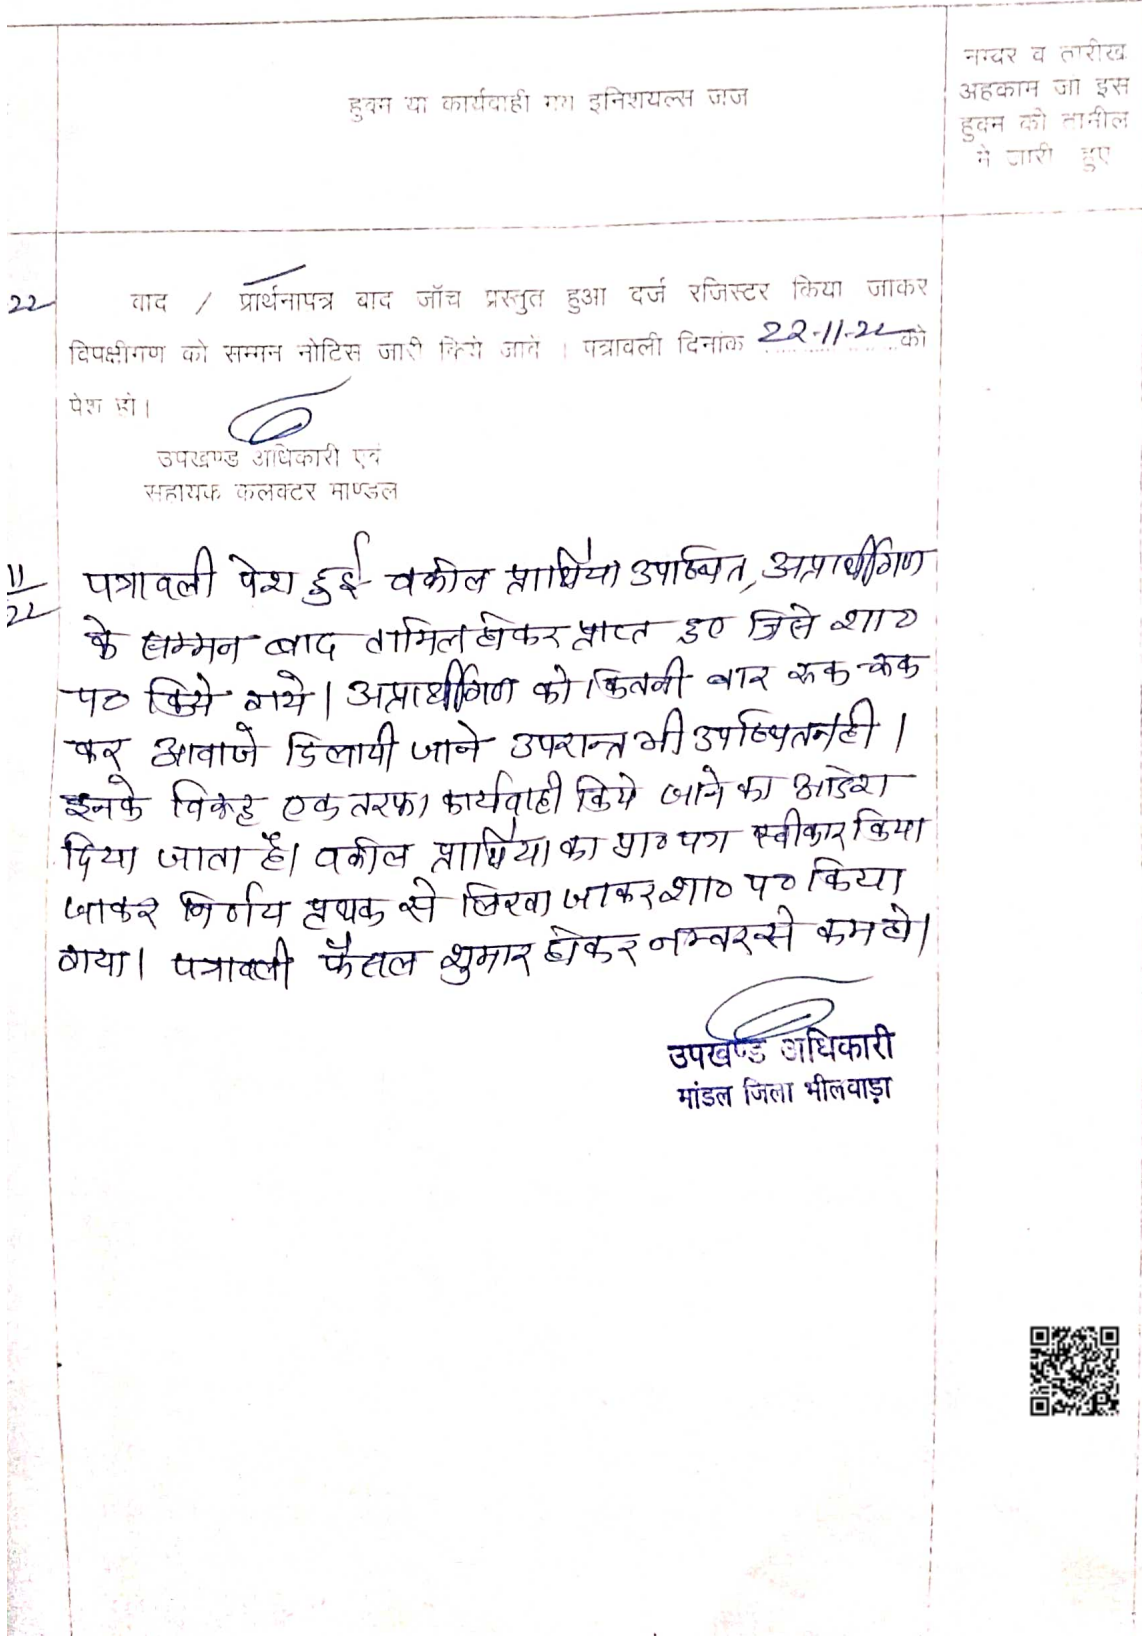 हुक्म या कार्यवाही मय इनिशयल्स जज
नम्बर व तारीख
अहकाम जो इस
हुक्म की तामील
में जारी हुए
22
वाद / प्रार्थनापत्र बाद जॉच प्रस्तुत हुआ दर्ज रजिस्टर किया जाकर
विपक्षीगण को सम्मन नोटिस जारी किये जावे । पत्रावली दिनांक 22-11-22 को
पेश हो।
उपखण्ड अधिकारी एवं
सहायक कलक्टर माण्डल
11
22
पत्रावली पेश हुई वकील प्रार्थिया उपस्थित, अप्रार्थीगण
के सम्मन बाद तामिल होकर प्राप्त हुए जिसे शा०
प० किये गये। अप्रार्थीगण को कितनी बार रूक-रूक
कर आवाजे दिलायी जाने उपरान्त भी उपस्थित नही ।
इनके विरूद्ध एक तरफा कार्यवाही किये जाने का आदेश
दिया जाता है। वकील प्रार्थिया का प्रा० पत्र स्वीकार किया
जाकर निर्णय प्रथक से लिखा जाकर शा० प० किया
गया। पत्रावली फैसल शुमार होकर नम्बर से कम हो।
उपखण्ड अधिकारी
मांडल जिला भीलवाड़ा